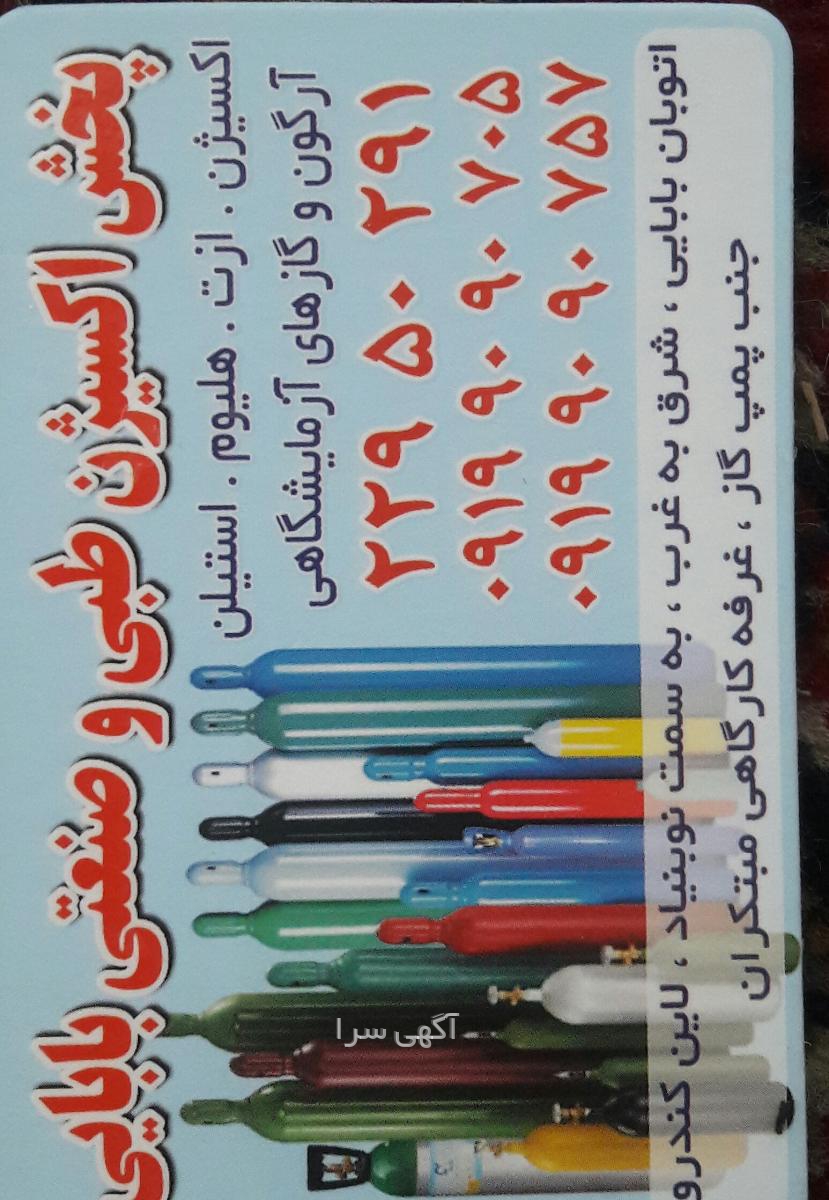 پخش اکسیژن طبی و صنعتی بابایی
اکسیژن . ازت . هلیوم . استیلن
آرگون و گازهای آزمایشگاهی
۲۲۹ ۵۰ ۲۹۱
۰۹۱۹ ۹۰ ۹۰ ۷۰۵
۰۹۱۹ ۹۰ ۹۰ ۷۵۷
اتوبان بابایی ، شرق به غرب ، به سمت نوبنیاد ، لاین کندرو
جنب پمپ گاز ، غرفه کارگاهی مبتکران
آگهی سرا